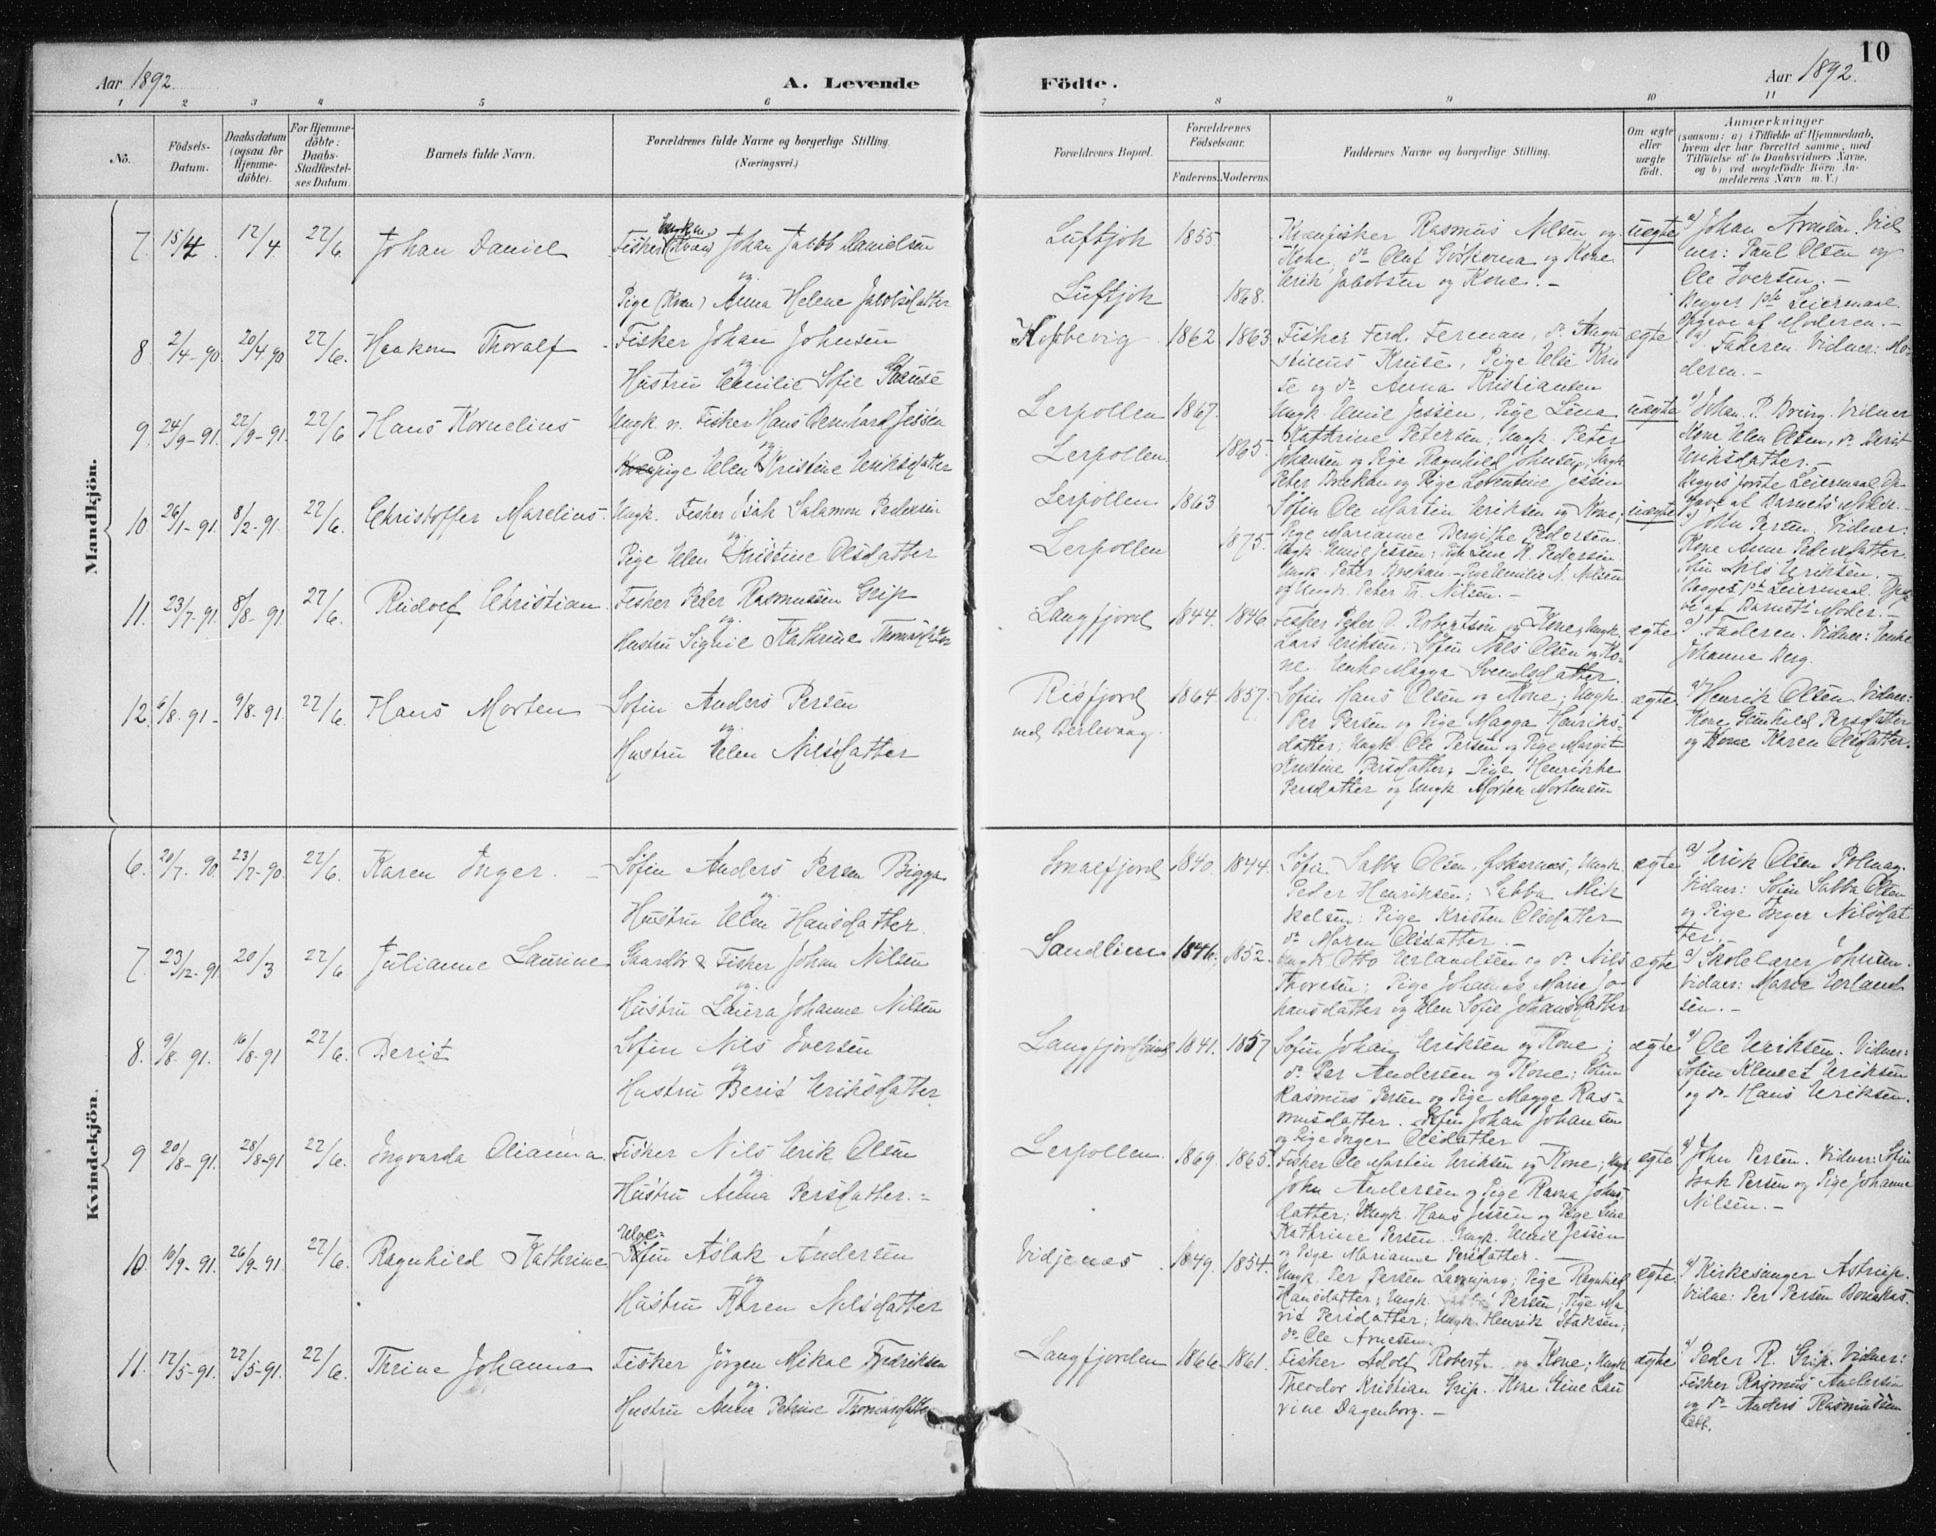 Aar 1892.
A. Levende
Födte.
Aar 1892.
10
1 2 3 4 5 6 7 8 9 10 11
No.
Födsels-Datum.
Daabsdatum (ogsaa for Hjemme-döbte).
For Hjemme-döbte: Daabs-Stadfæstel-ses Datum.
Barnets fulde Navn.
Forældrenes fulde Navne og borgerlige Stilling.
(Næringsvei.)
Forældrenes Bopæl.
Forældrenes Födselsaar.
Faderens. Moderens.
Faddernes Navne og borgerlige Stilling.
Om ægte eller uægte födt.
Anmærkninger
(saasom: a) i Tilfælde af Hjemmedaab,
hvem der har forrettet samme, med
Tilföielse af to Daabsvidners Navne,
og b) ved uægtefödte Börn An-
melderens Navn m. V.)
Mandkjön.
7. 15/4. 17/4 22/6. Johan Daniel
Ungkar
Fisker (Kvæn) Johan Jacob Danielsen
og
Pige (Kvæn) Anna Helene Jacobsdatter
Luftjok 1855.
Luftjok 1868.
Kvænfisker Rasmus Nilsen og
Kone, do Olaf og Kone
Erik Jakobsen og Kone. -
uægte
a) Johan Arnesen. Vid
ner: Paul Olsen og
Ole Iversen. -
Begges 1ste Leiermaal.
Opgive af Moderen. -
8 2/4-90. 20/4 90 22/6. Haakon Thoralf
Fisker Johan Johnsen
og
Hustru Emilie Sofie Kruse
Kobbevig 1862 1863
Fisker Ferd. Ferman, do Augu
stinus Kruse, Pige Else Kru
se og do Anna Kristiansen
ægte
a) Faderen. Vidner: Mo-
deren. -
9. 24/9-91. 27/9-91. 22/6 Hans Kornelius
Ungk. n. Fisker Hans Bernhard Jessen
og
Pige Elen Kristine Eriksdatter
Lerpollen 1867.
Lerpollen 1865.
Ungk. Emil Jessen, Pige Lina
Kathrine Petersen; Ungk. Peter
Johansen og Pige Ragnhild Johnsen; Ungk
Peter Brekan og Pige Lorentine Jessen
uægte
a) Johan P. Bving. Vidner
Kone Elen Olsen, do Berit
Eriksdatter. -
Begges første Leiermaal. Op
gave af Barnets Moder. -
10. 26/1-91. 8/2-91. 22/6. Christoffer Marelius
Ungk. Fisker Isak Salamon Pedersen
og
Pige Elen Kristine Olsdatter
Lerpollen 1863
Lerpollen 1875.
Søfin Ole Martin Eriksen og Kone;
Pige Marianne Bergithe Pedersen
Ungk. Emil Jessen; Pige Line K. Pedersen
Ungk. Peter Brekan - Pige Emilie N. Nilsen
og Ungk. Peter Nilsen. -
uægte
a) John Persen. Vidner:
Kone Anne Pedersdatter
Søfin Nils Eriksen. -
Begges 1ste Leiermaal. Opga
ve af Barnets Moder. -
11. 23/7-91. 8/8-91. 22/6. Rudolf Christian
Fisker Peder Rasmussen Grip
og
Hustru Signie Kathrine Thomasdatter
Langfjord 1844. 1846.
Fisker Peder O. Robertson og Kone, Ungk.
Lars Eriksen; Søfin Nils Olsen og Ko-
ne. Enke Magga Svendsdatter.
ægte
a) Faderen. Vidner: Enke
Johanne Berg.
12. 6/8-91- 9/8-91. 22/6. Hans Morten
Søfin Anders Persen
og
Hustru Elen Nilsdatter
Risfjord
ved Berlevaag.
1864 1857.
Søfin Hans Olsen og Kone; Ungk.
Per Persen og Pige Magga Henriks-
datter; Ungk. Ole Persen og Pige Margit
Kristine Persdatter; Pige Henrikke
Persdatter og Ungk. Morten Mortensen
ægte
a) Henrik Olsen. Vidner:
Kone Gunhild Persdatter
og Kone Karen Olsdatter.
Kvindekjön.
6. 20/7. 90. 23/7-90. 22/6. Karen Inger. -
Søfin Anders Persen Bigga
og
Hustru Elen Hansdatter.
Smalfjord 1840. 1844.
Søfin Sabba Olsen, Ungk.
Peder Henriksen; Sabba Mik
kelsen; Pige Kristen Olsdatter
do Maren Olsdatter. -
ægte
a) Erik Olsen Polmag.
Vidner: Søfin Sabba Olsen
og Pige Inger Nilsdat
ter. -
7. 23/2-91. 20/3 22/6 Julianne Laurine
Gaardbr & Fisker Johan Nilsen
og
Hustru Laura Johanne Nilsen
Sandlien 1846. 1852.
Ungk. Otto Erlandsen og do Nils
Thoresen; Pige Johanna Marie Jo-
hansdatter og Elen Sofie Johansdatter
ægte
a) Skolelærer Johnsen.
Vidner: Marie Erland
sen. -
8. 9/8-91. 16/8-91 22/6. Berit
Søfin Nils Iversen
og
Hustru Berit Eriksdatter
1841. 1857
Søfin Johan Eriksen og Kone;
do Per Andersen og Kone; Søfin
Rasmus Persen og Pige Magge Ras-
musdatter. Søfin Johan Johansen
og Pige Inger Olsdatter
ægte
a) Ole Eriksen. Vidner:
Søfin Klemet Eriksen
og do Hans Eriksen.
9 20/8-91. 28/8-91 22/6. Ingvarda Olianna
Fisker Nils Erik Olsen
og
Hustru Anna Persdatter. -
Lerpollen. 1869. 1865.
Fisker Ole Martin Eriksen og Kone; Ungk
John Andersen og Pige Ravna Johns
datter; Ungk. Hans Jessen og Pige Line
Kathrine Persen. Ungk. Emil Jessen
og Pige Marianne Persdatter. -
ægte
a) John Persen. Vidner: Søfin
Isak Persen og Pige Johanne
Nilsen. -
10. 16/9-91. 26/9-91. 22/6. Ragnhild Kathrine
Elve-
Søfin Aslak Andersen
og
Hustru Karen Nilsdatter
Vidjenæs. 1849. 1854.
Ungk. Per Persen; Pige Ragnhild
Hansdatter; Ungk. Persen; Pige Ma-
rit Persdatter; Ungk. Henrik Isaksen;
do Ole Arnesen.
ægte
a) Kirkesanger Astrup.
Vidne: Per Persen Bonakas.
11. 17/5-91. 22/5-91. 22/6. Thrine Johanna
Fisker Jörgen Mikal Fredriksen
og
Hustru Anna Petrine Thomasdatter
Langfjorden 1866. 1861.
Fisker Adolf Roberts. og Kone; Ungk
Theodor Kristian Grip. Kone Stine Lau
rine Dagenborg. -
ægte
a) Peder R. Grip. Vidner:
Fisker Rasmus Andersen
og do Anders Rasmussen